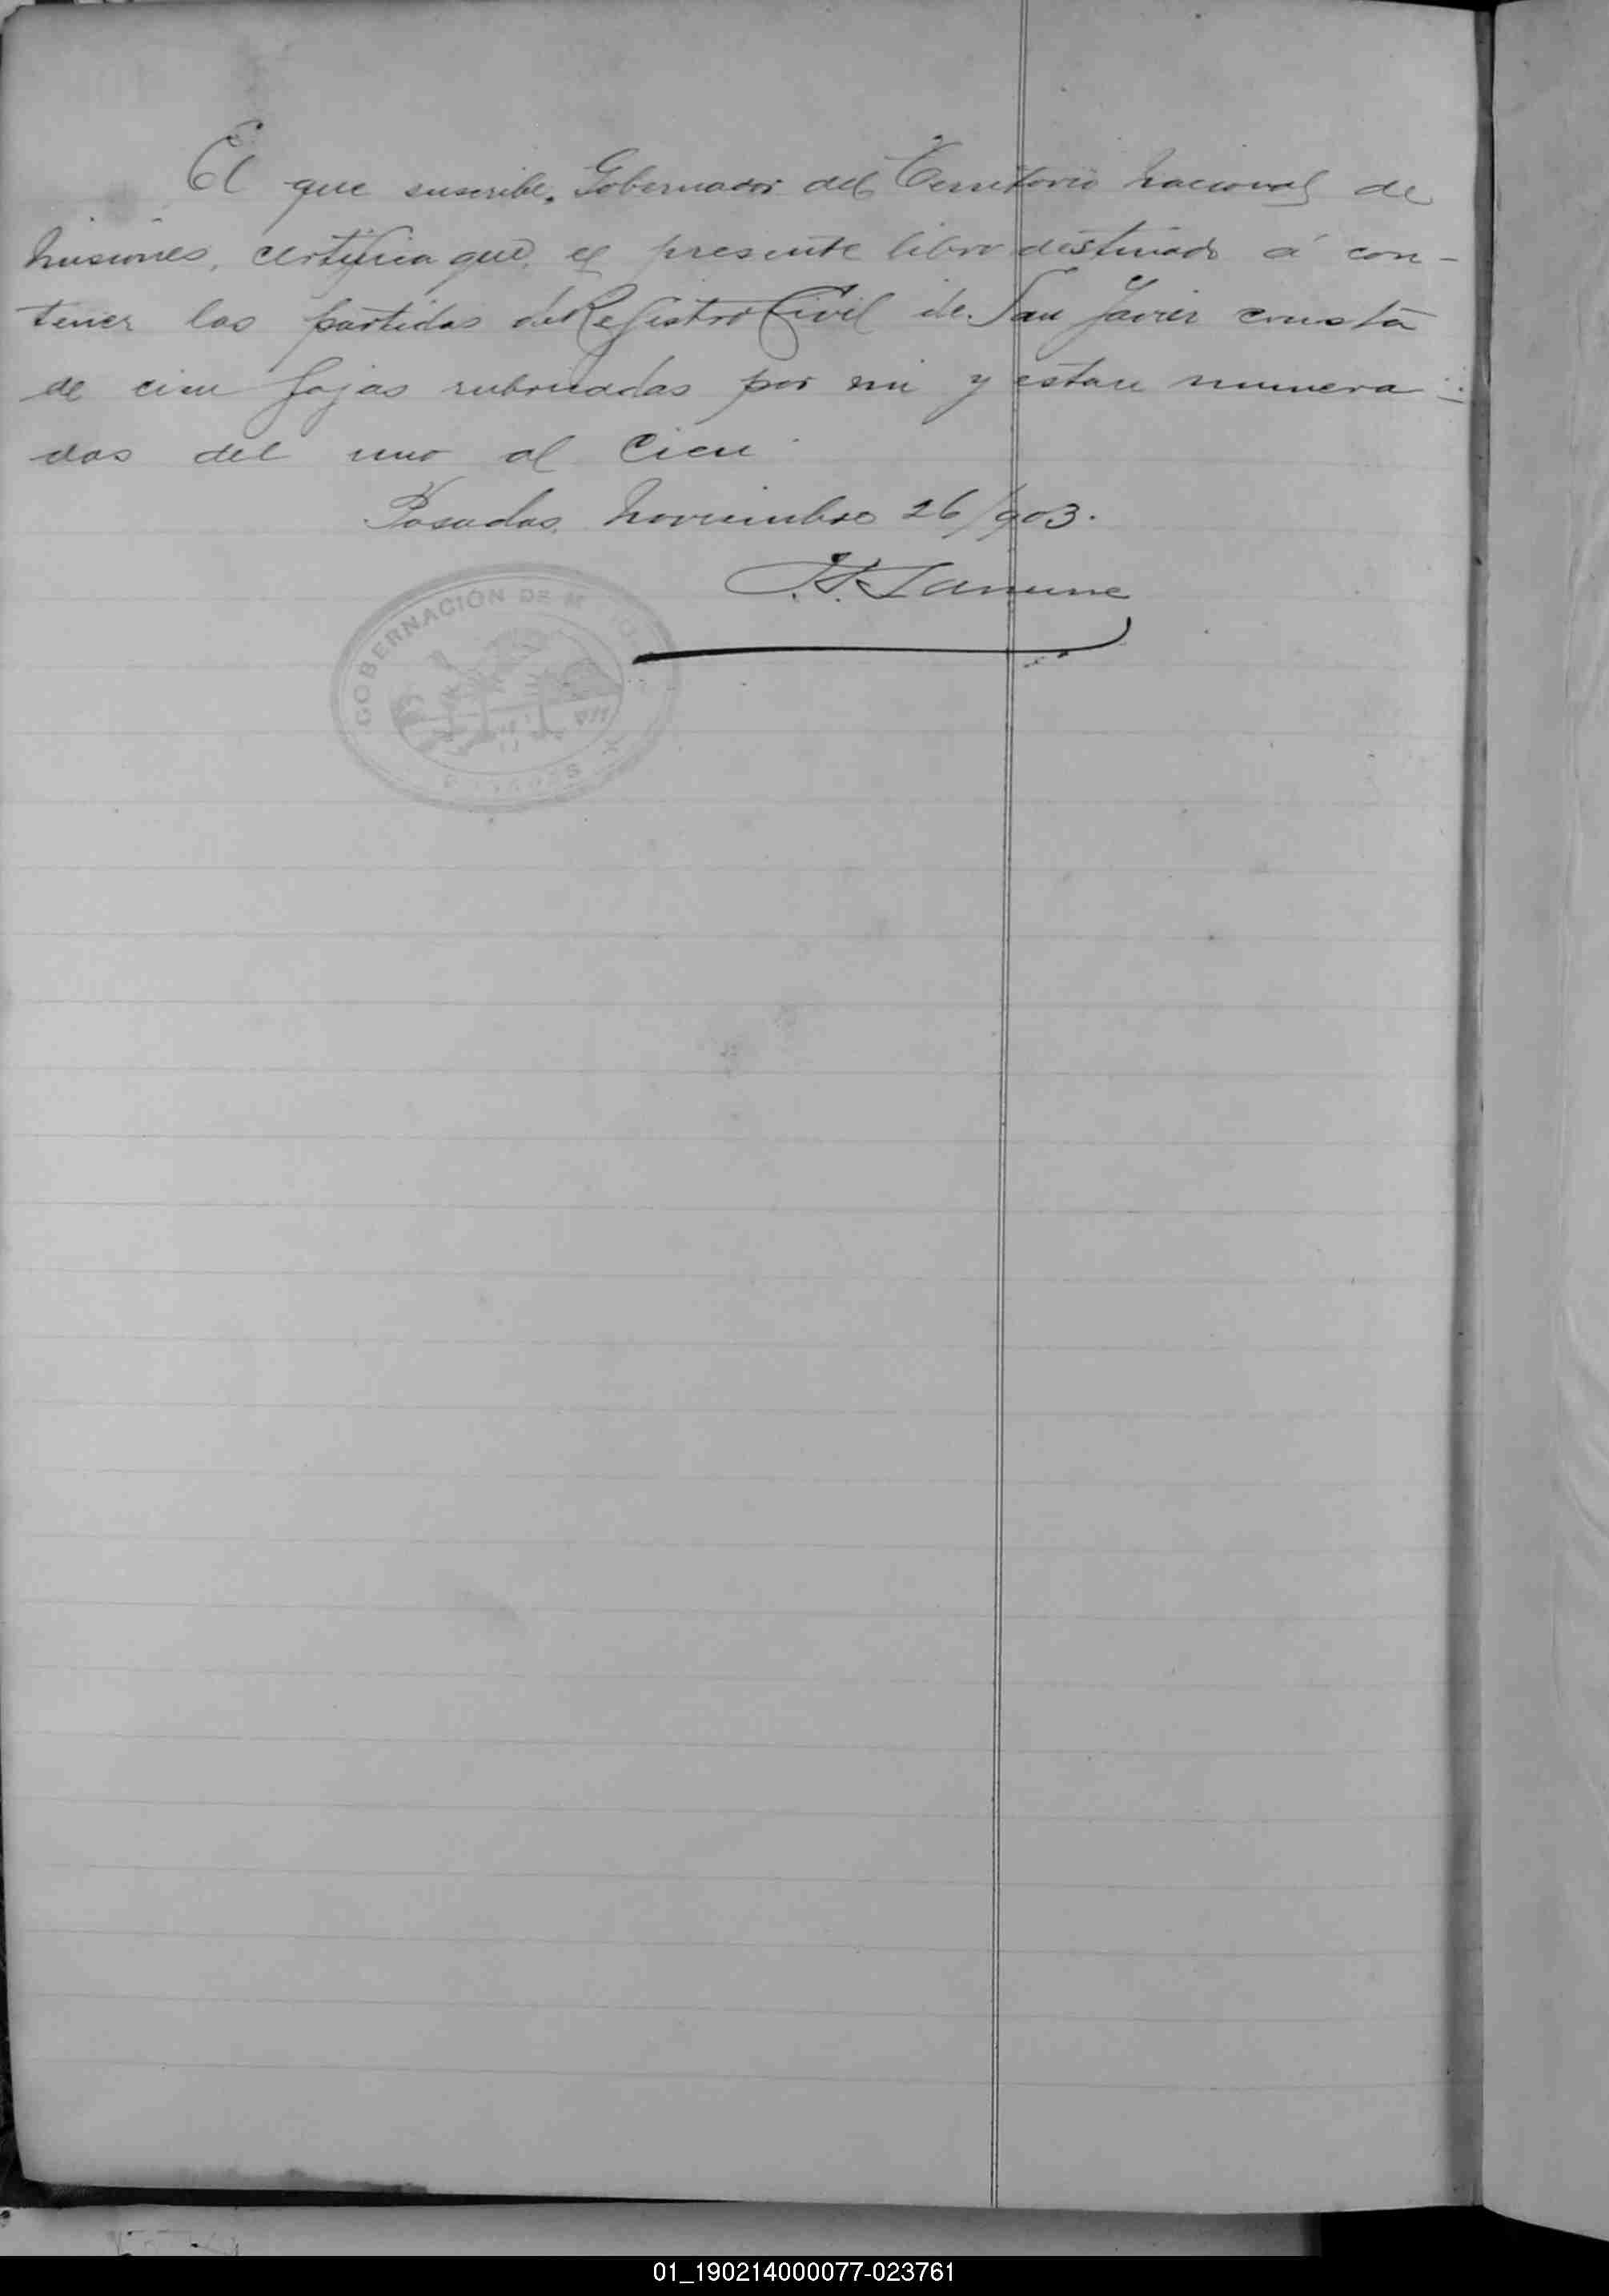 El que suscribe, Gobernador del Territorio Nacional de
Misiones, certifica que el presente libro destinado á con-
tener las partidas del Registro Civil de San Javier consta
de cien fojas rubricadas por mi y estan numera-
das del uno al Cien
Posadas, Noviembre 26/903.
J. J. Lanusse
GOBERNACIÓN DE
01_190214000077-023761